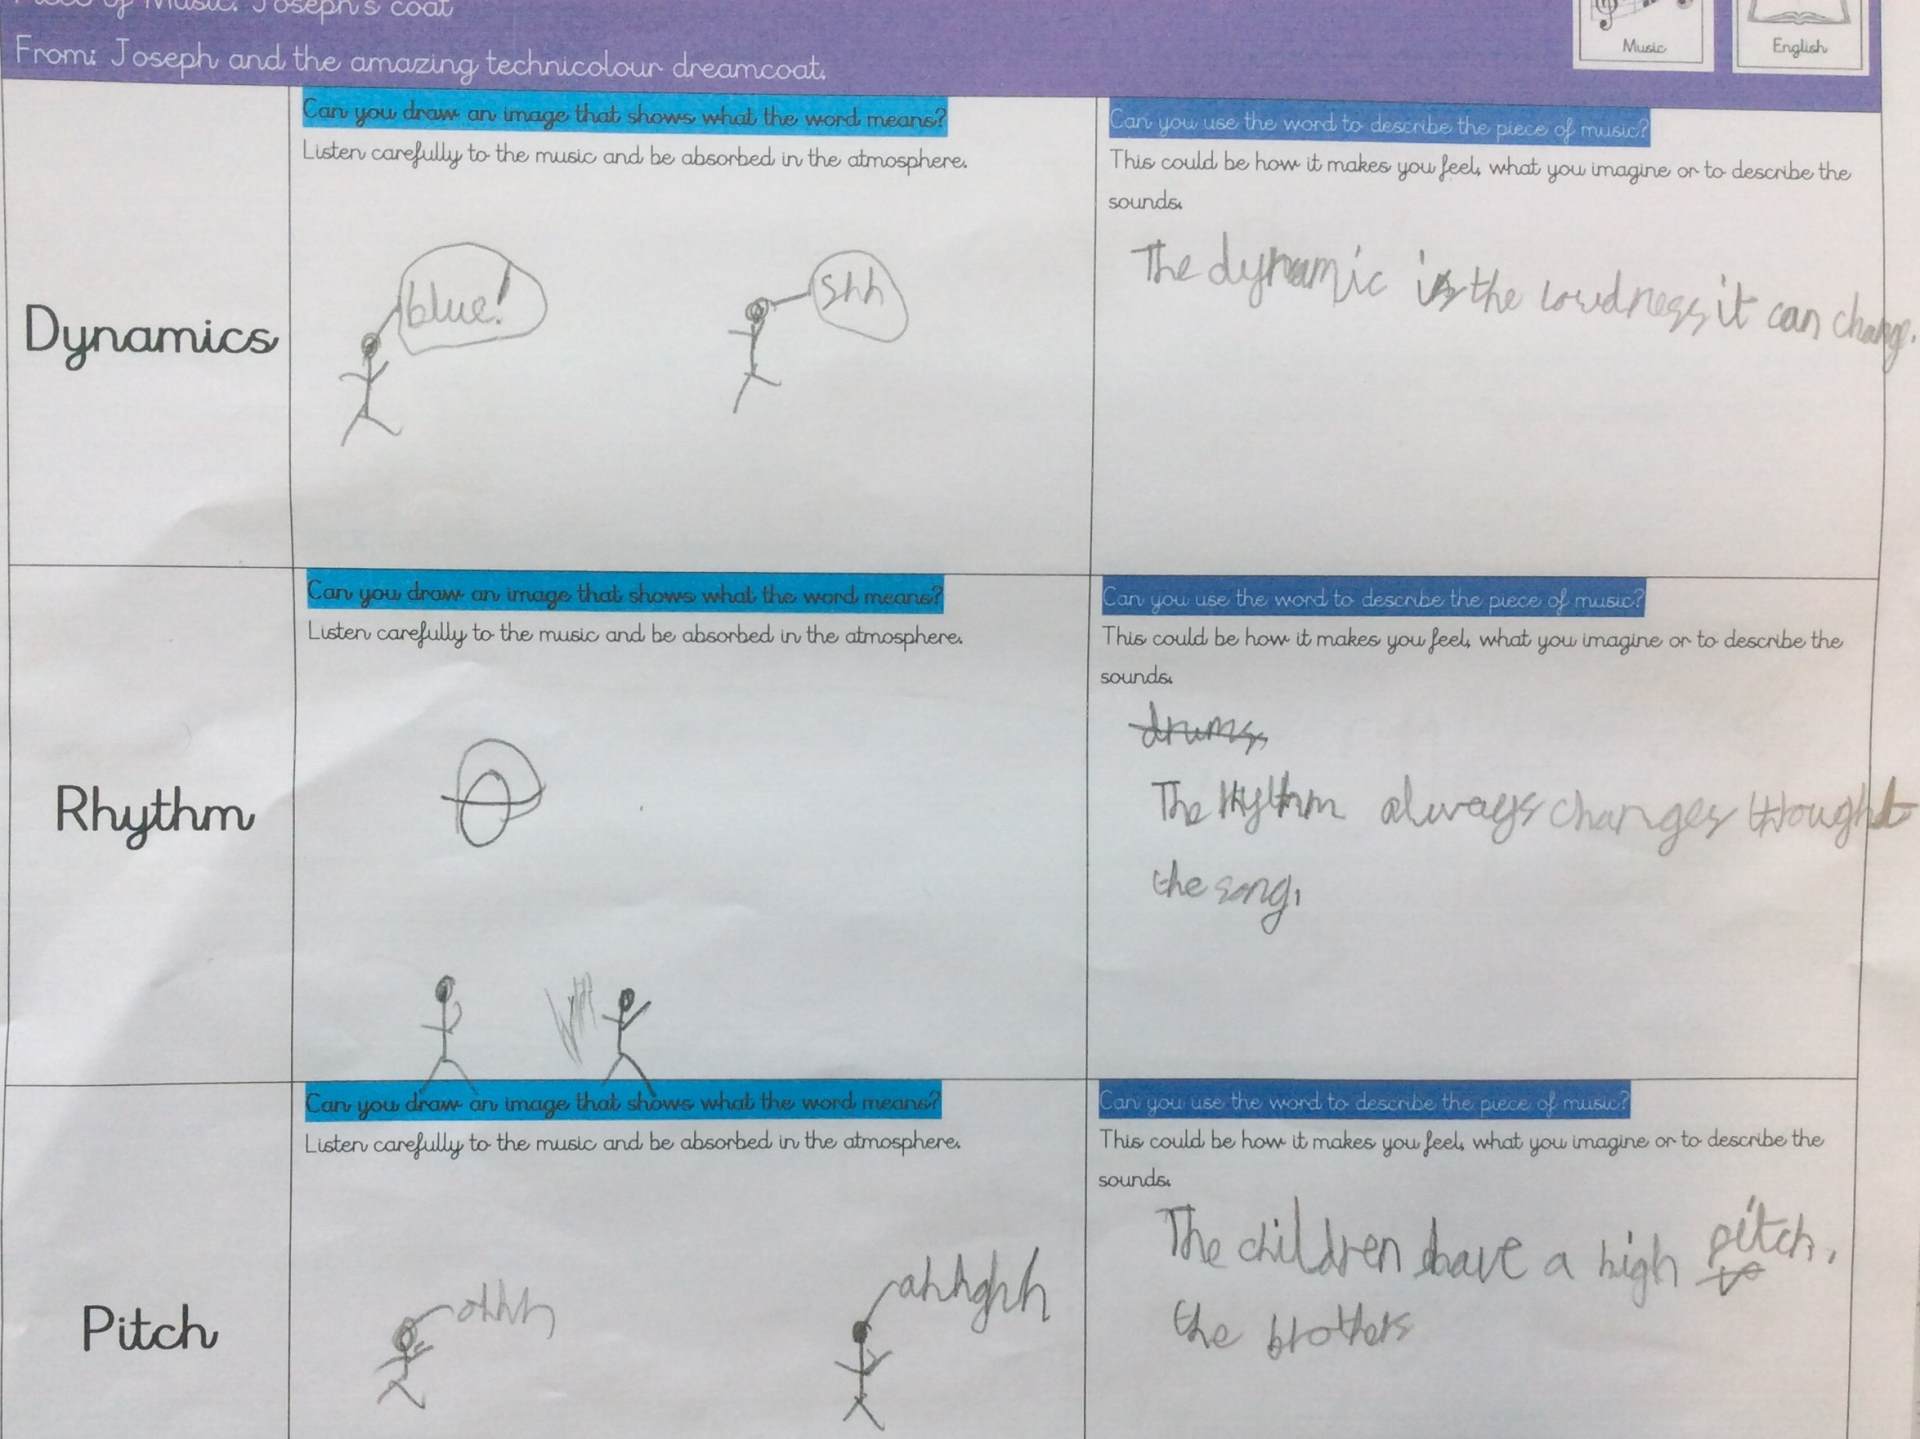 Piece of Music: Joseph's coat
From: Joseph and the amazing technicolour dreamcoat.
Music
English
Dynamics
Can you draw an image that shows what the word means?
Listen carefully to the music and be absorbed in the atmosphere.
blue!
shh
Can you use the word to describe the piece of music?
This could be how it makes you feel, what you imagine or to describe the
sounds.
The dynamic is the loudness it can change.
Rhythm
Can you draw an image that shows what the word means?
Listen carefully to the music and be absorbed in the atmosphere.
Can you use the word to describe the piece of music?
This could be how it makes you feel, what you imagine or to describe the
sounds.
drums
The always changes
the song.
Pitch
Can you draw an image that shows what the word means?
Listen carefully to the music and be absorbed in the atmosphere.
ohhh
ahhghh
Can you use the word to describe the piece of music?
This could be how it makes you feel, what you imagine or to describe the
sounds.
The children have a high pitch.
the brothers